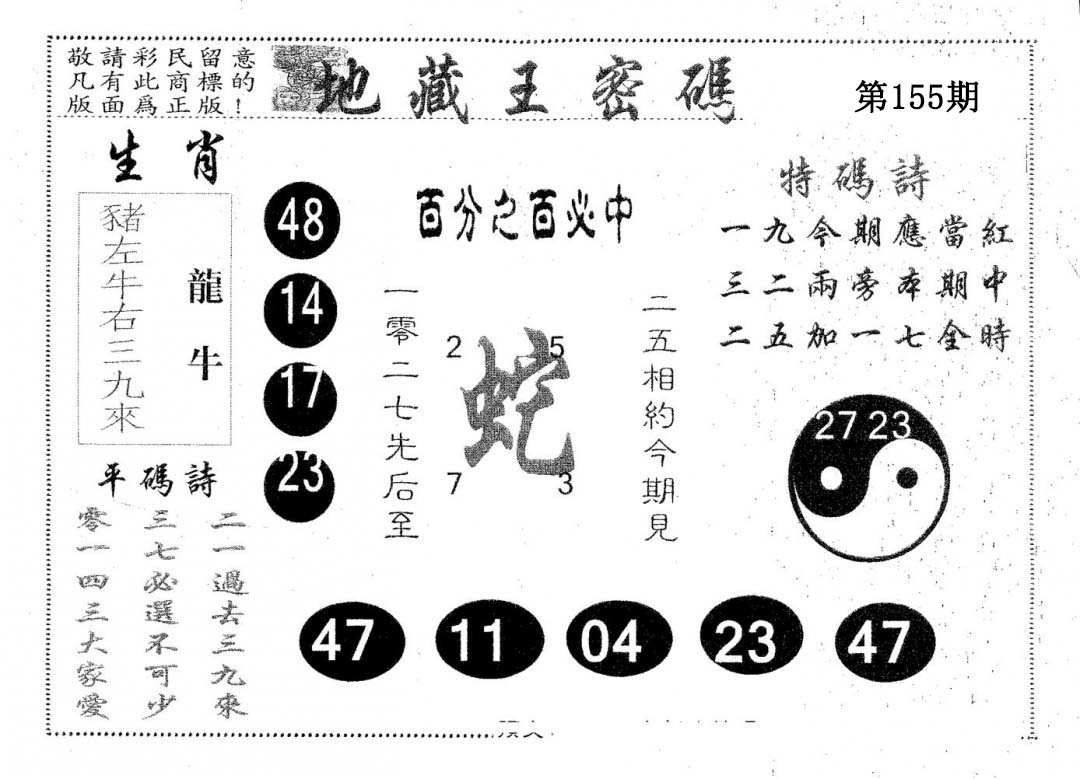 敬請彩民留意
凡有此商標的
版面爲正版！
地藏王密碼
第155期
生肖
豬左牛右三九來
龍牛
48
14
17
23
百分之百必中
一零二七先后至
2 5
蛇
7 3
二五相約今期見
特碼詩
一九今期應當紅
三二兩旁本期中
二五加一七全時
27 23
平碼詩
二一過去三九來
三七必選不可少
零一四三大家愛
47 11 04 23 47